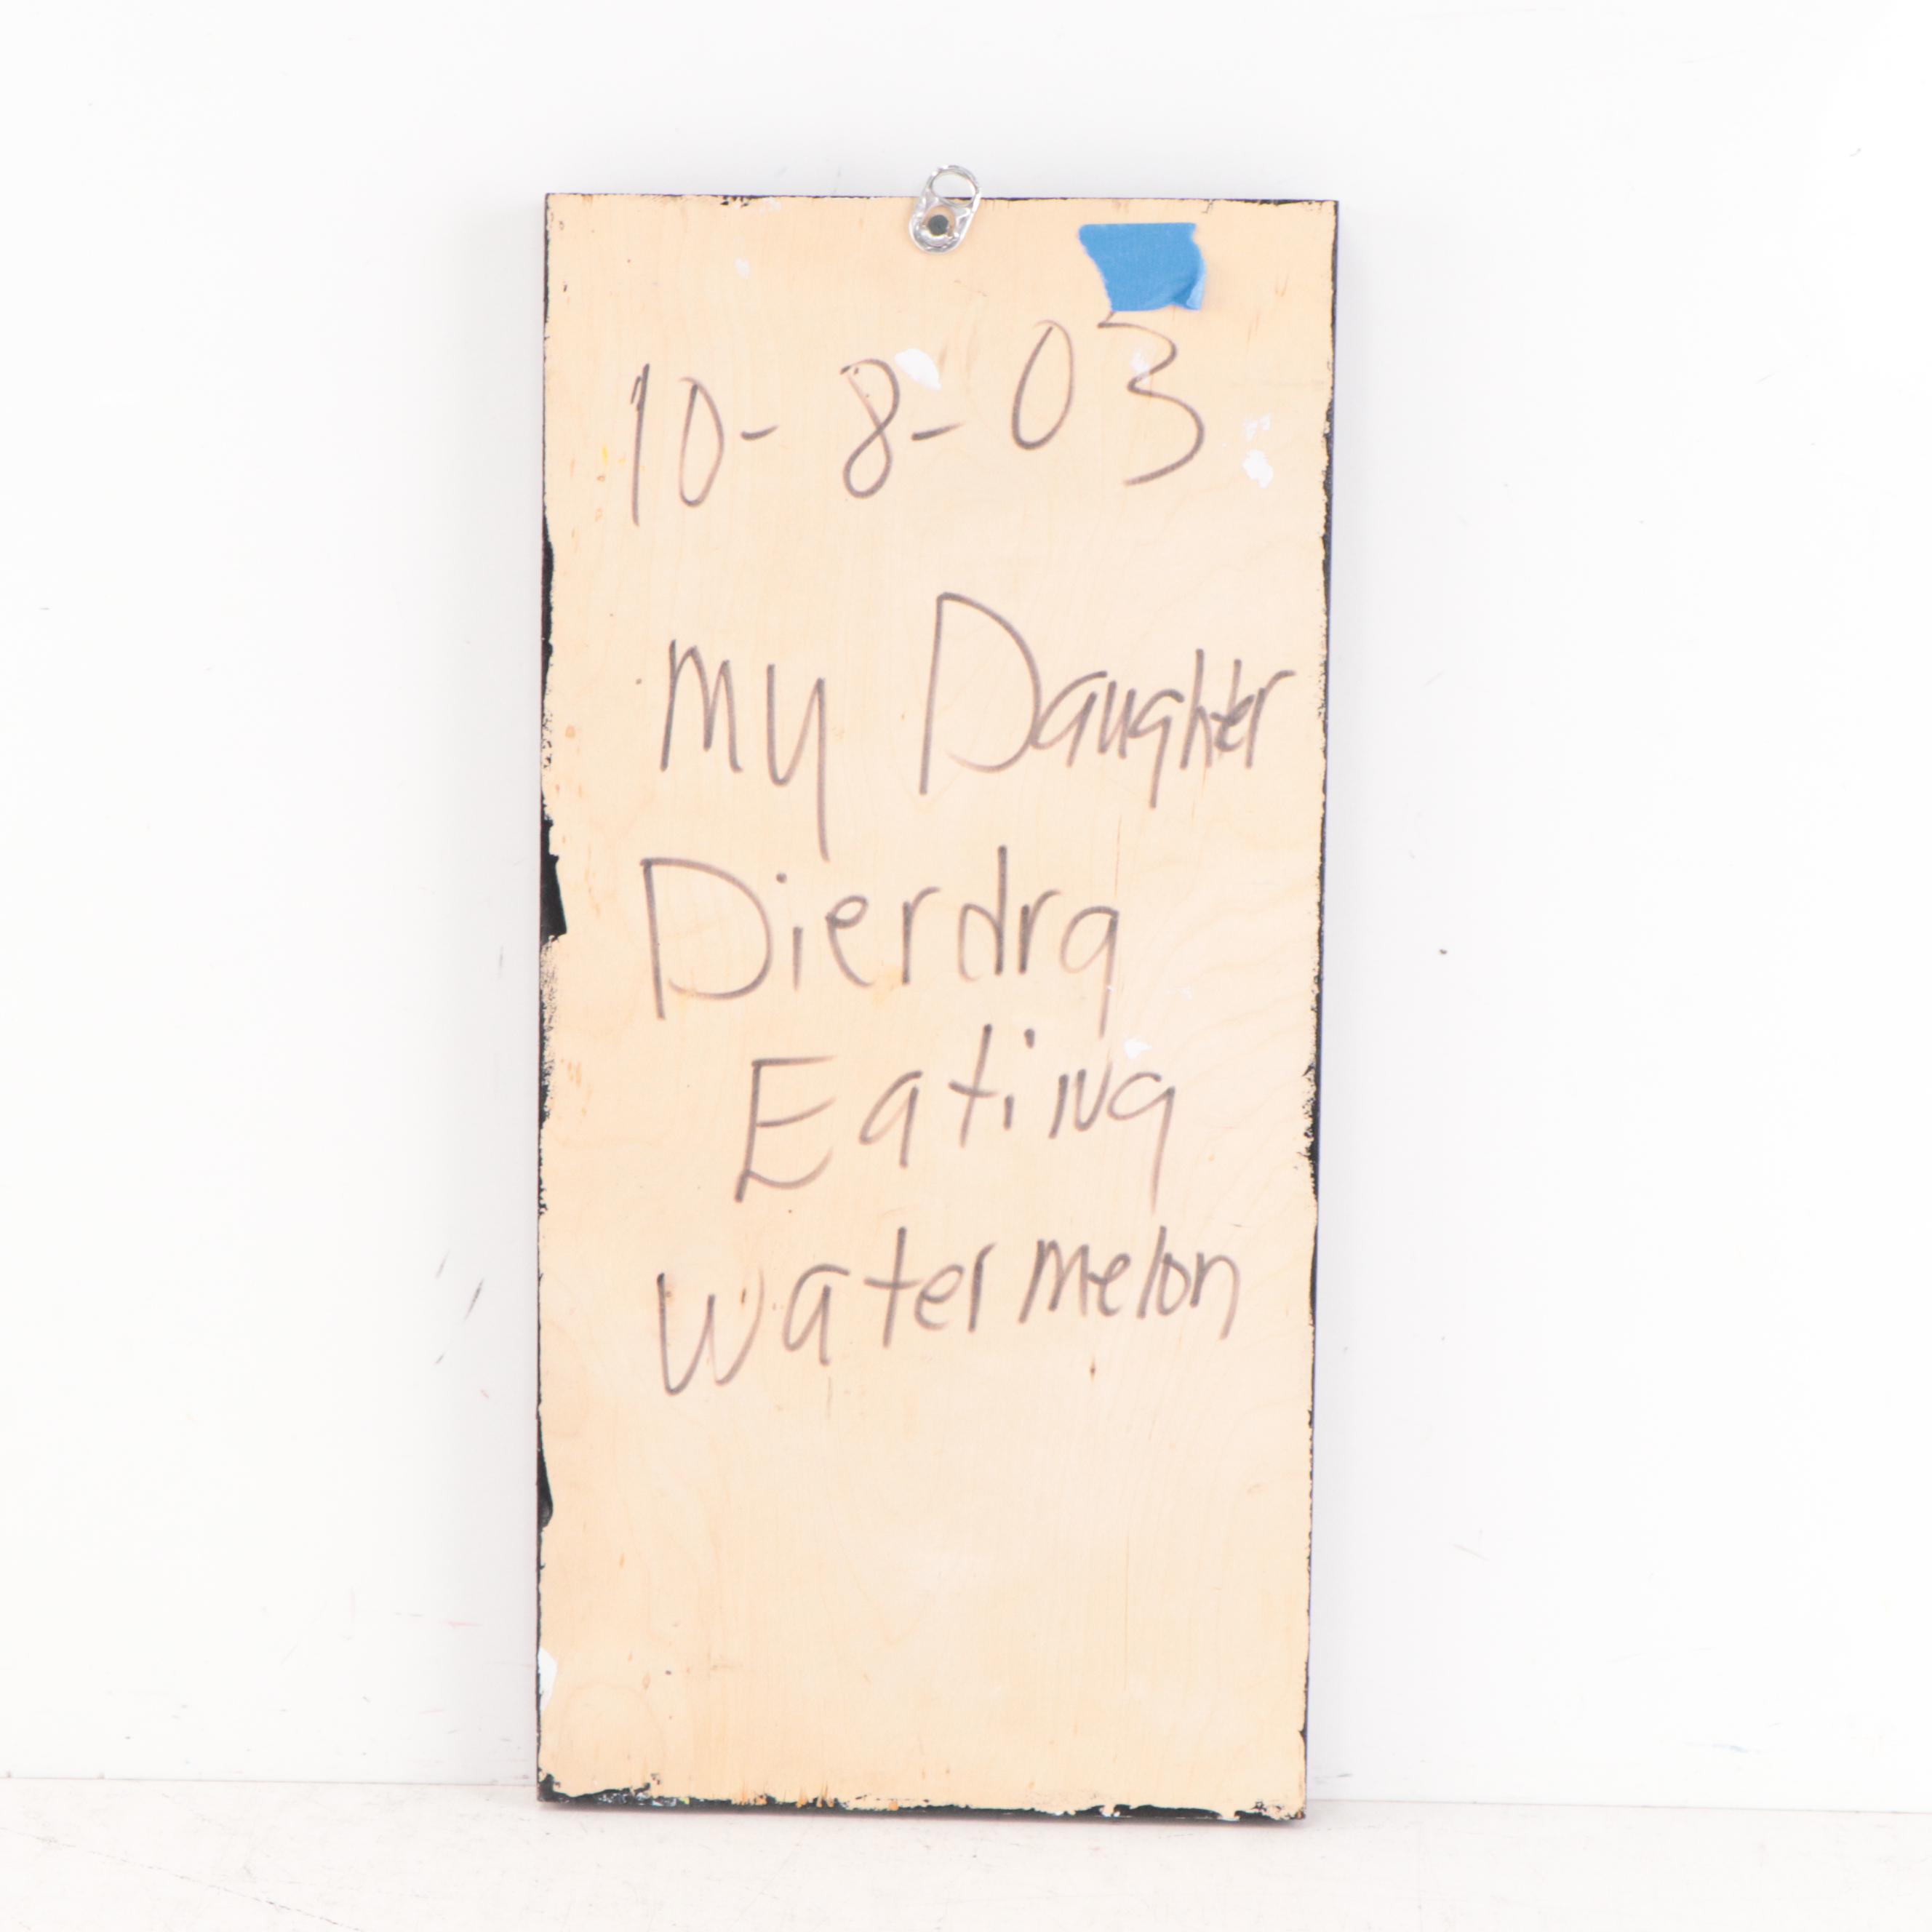 10-8-03
My Daughter
Dierdra
Eating
Watermelon